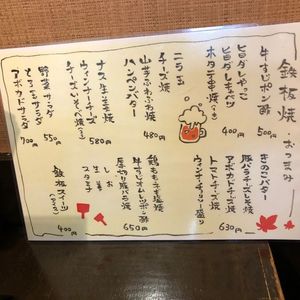 鉄板焼・おつまみ
牛すじポン酢 500円
旨ダレやっこ
旨ダレキャベツ 400円
ホタテ串焼(1本)
ニラ玉
チーズ焼
山芋ふわふわ焼 480円
ハンペンバター
ナス生姜焼
ウィンナーチーズ 580円
チーズいそべ焼
野菜サラダ 550円
とろろサラダ
アボカドサラダ 700円
きのこバター
豚バラチーズしそ焼
アボカドチーズ焼 630円
トマトチーズ焼
ウィンナチョリソー盛り
鶏ももネギ塩焼
牛すじオムレツポン酢 650円
厚切り豚バラ焼
しお
生姜
スタミナ
鉄板スイーツ(アイス)
400円